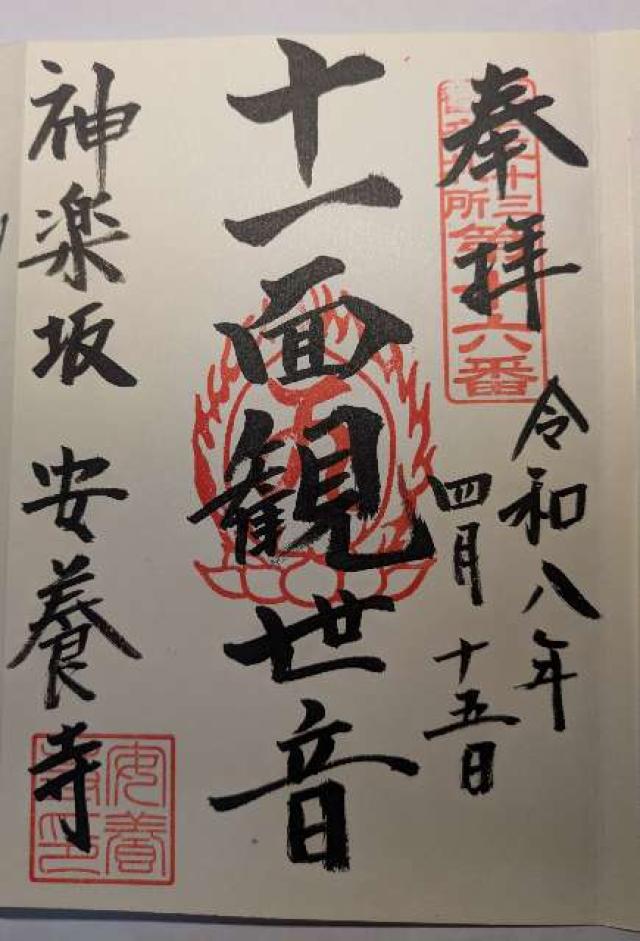 奉拝
三十三
所
第十六番
令和八年
四月十五日
十一面観世音
神楽坂 安養寺
安養
寺印